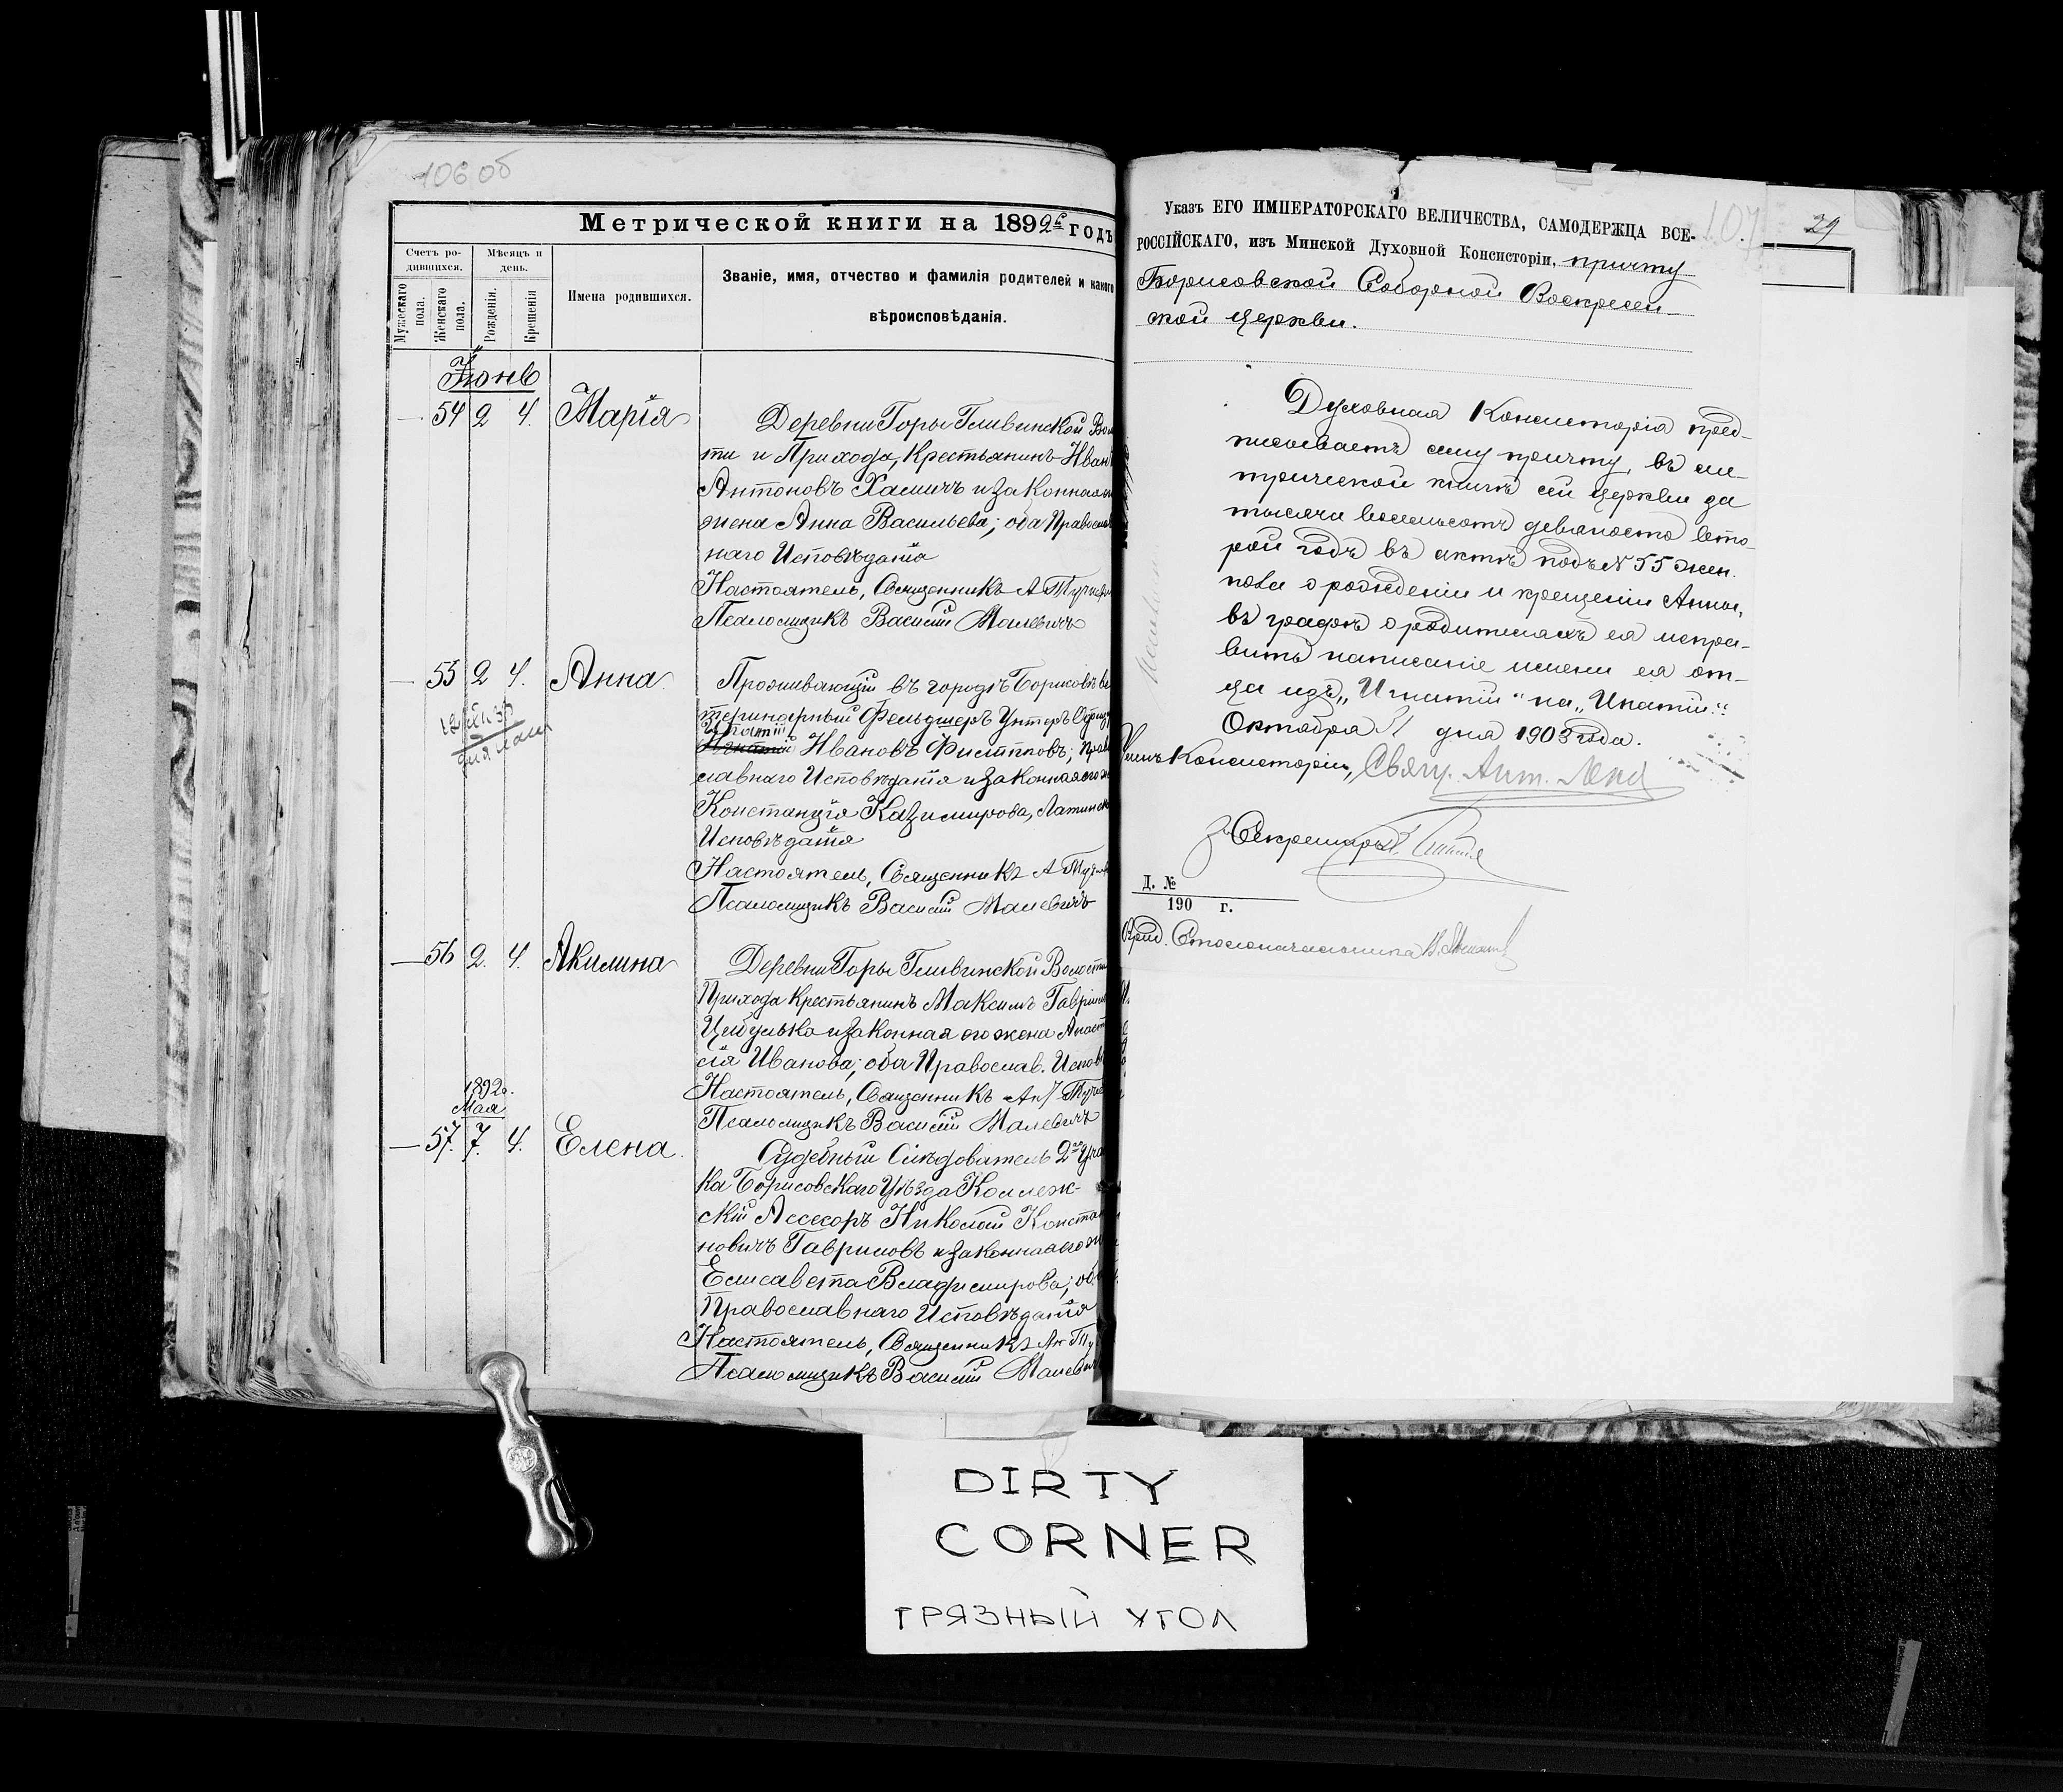 106 об
Метрической книги на 1892й годъ
Счетъ родившихся.
Мѣсяцъ и день.
Мужескаго пола.
Женскаго пола.
Рожденія.
Крещенія
Имена родившихся.
Званіе, имя, отчество и фамилія родителей и какого
вѣроисповѣданія.
Іюнь
54 2 4. Марія
Деревни Горы Гливинской Вол
ти и Прихода, Крестьянинъ Иван
Антоновъ Хамичъ и законная
жена Анна Васильева; оба Православ
наго Исповѣданія
Настоятель, Священникъ А
Псаломщикъ Василій Малевичъ
55 2 4. Анна
Проживающій въ городѣ Борисовѣ ве
теринарный Фельдшеръ Унтеръ Офиц
Ипатій
Игнатій Ивановъ Филипповъ; Прав
славнаго Исповѣданія и законная его ж
Констанція Казимирова, Латинск
Исповѣданія
Настоятель, Священникъ А
Псаломщикъ Василій Малевичъ
56 2. 4. Акилина
Деревни Горы Гливинской Волости
Прихода Крестьянинъ Максимъ Гаврил
Цыбулька и законная его жена Анаст
сія Иванова; оба Православ. Испов
Настоятель, Священникъ Ан
Псаломщикъ Василій Малевичъ
1892.
Мая
57. 7. 4. Елена.
Судебный Слѣдователь 2го Уча
ка Борисовскаго Уѣзда Коллеж-
скій Ассесоръ Николай Конста
новичъ Гавриловъ и законная его ж
Елисавета Владимирова; об
Православнаго Исповѣданія
Настоятель, Священникъ Ан
Псаломщикъ Василій Малевич
107.
29
Указъ ЕГО ИМПЕРАТОРСКАГО ВЕЛИЧЕСТВА, САМОДЕРЖЦА ВСЕ-
РОССІЙСКАГО, изъ Минской Духовной Консисторіи, причту
Борисовской Соборной Воскресен
ской церкви.
Духовная Консисторія пред-
писываетъ сему причту, въ ме-
трической книгѣ сей церкви за
тысяча восемьсотъ девяносто вто-
рой годъ въ актѣ подъ № 55 жен.
пола о рожденіи и крещеніи Анны,
въ графѣ о родителяхъ ея испра-
вить написаніе имени ея от-
ца изъ „Игнатій“ на „Ипатій“.
Октября дня 1903 года.
Членъ Консисторіи, Свящ. Ант.
Секретарь
Д. №
190 г.
Столоначальника
DIRTY
CORNER
ГРЯЗНЫЙ УГОЛ